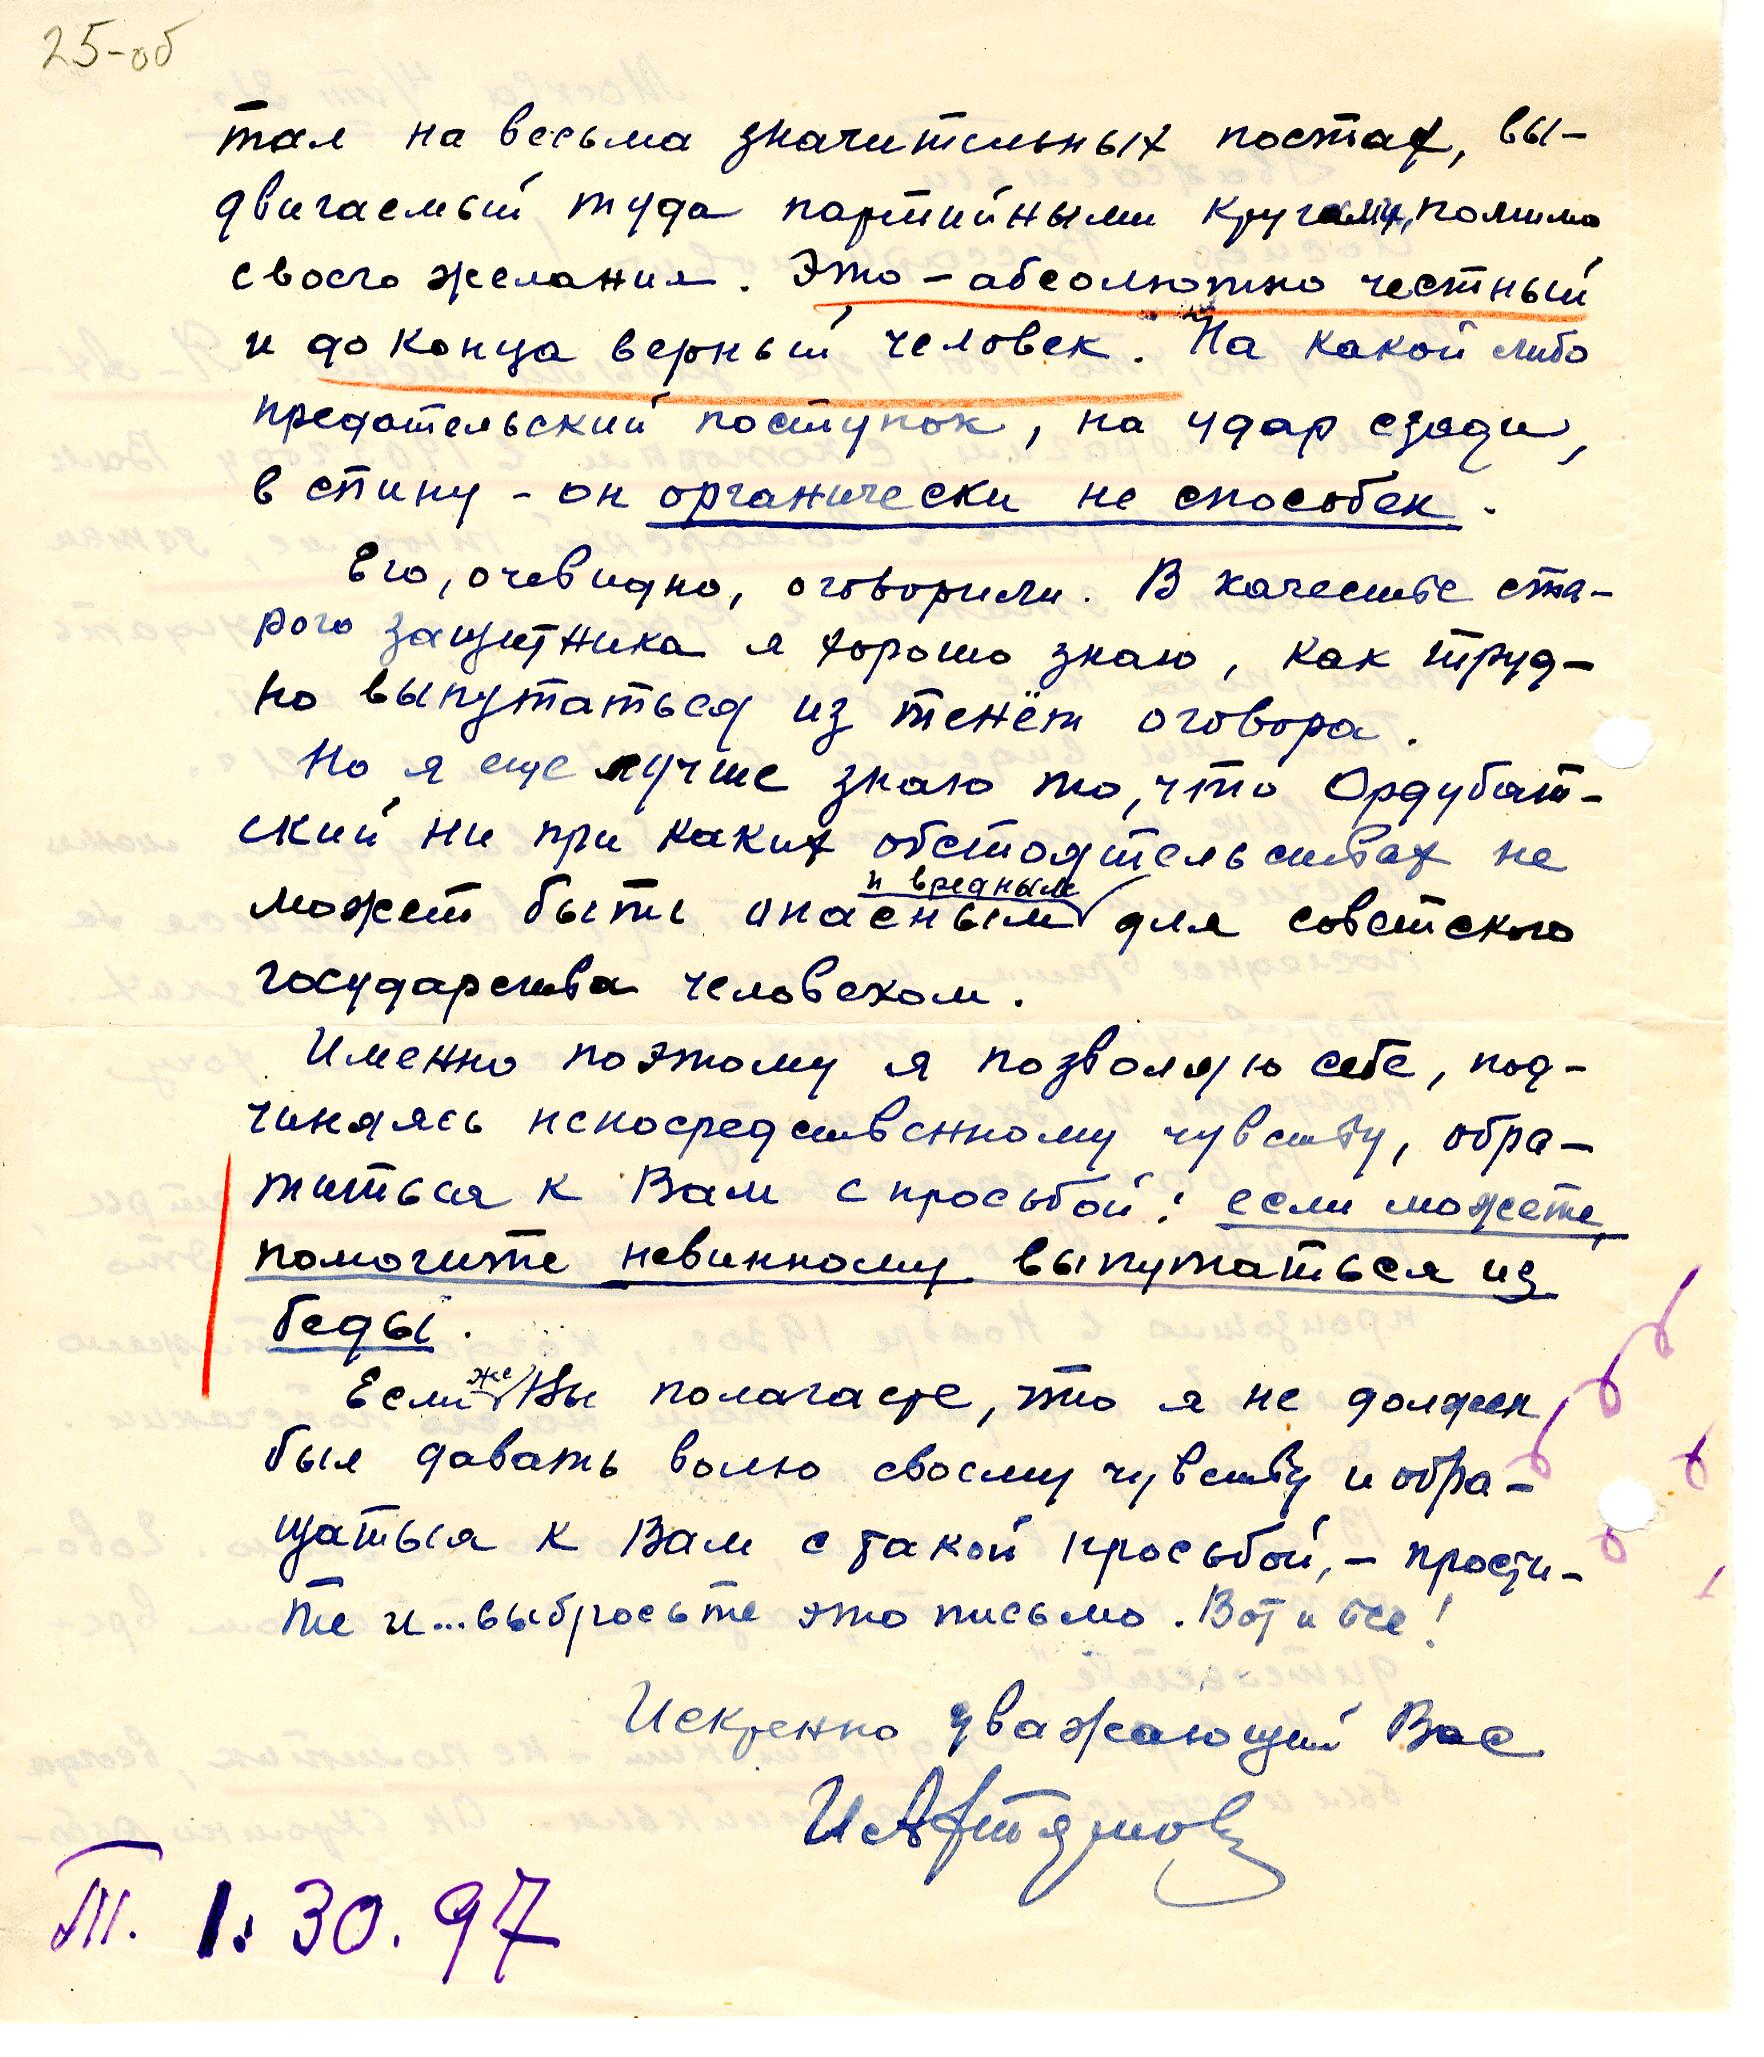 25-об
тал на весьма значительных постах, вы-
двигаемый туда партийными кругами, помимо
своего желания. Это - абсолютно честный
и до конца верный человек. На какой либо
предательский поступок, на удар сзади,
в спину - он органически не способен.
Его, очевидно, оговорили. В качестве ста-
рого защитника я хорошо знаю, как труд-
но выпутаться из тенёт оговора.
Но я еще лучше знаю то, что Ордубат-
ский ни при каких обстоятельствах не
и вредным
может быть опасным для советского
государства человеком.
Именно поэтому я позволяю себе, под-
чиняясь непосредственному чувству, обра-
титься к Вам с просьбой: если можете,
помогите невинному выпутаться из
беды.
же
Если Вы полагаете, что я не должен
был давать волю своему чувству и обра-
щаться к Вам с такой просьбой, - прости-
те и... выбросьте это письмо. Вот и все!
Искренно уважающий Вас
Т. 1: 30. 97